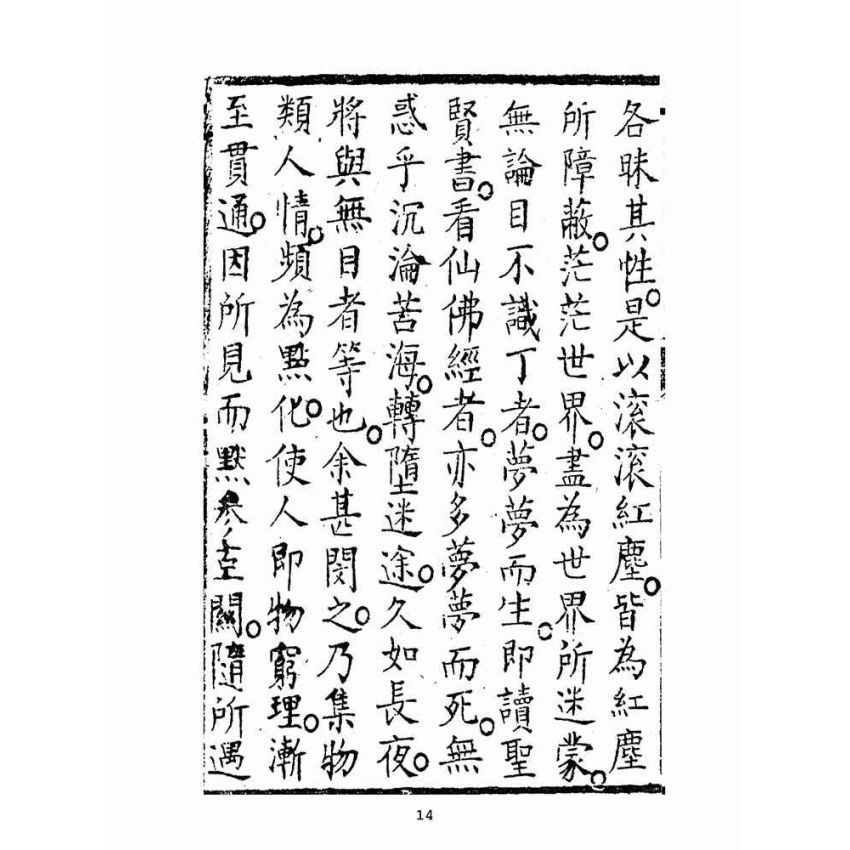 各昧其性。是以滚滚紅塵。皆為紅塵
所障蔽。茫茫世界。盡為世界所迷蒙。
無論目不識丁者。夢夢而生。即讀聖
賢書。看仙佛經者。亦多夢夢而死。無
惑乎沉淪苦海。轉墮迷途。久如長夜。
將與無目者等也。余甚閔之。乃集物
類人情。頻為點化。使人即物窮理。漸
至貫通。因所見而默參玄關。隨所遇
14